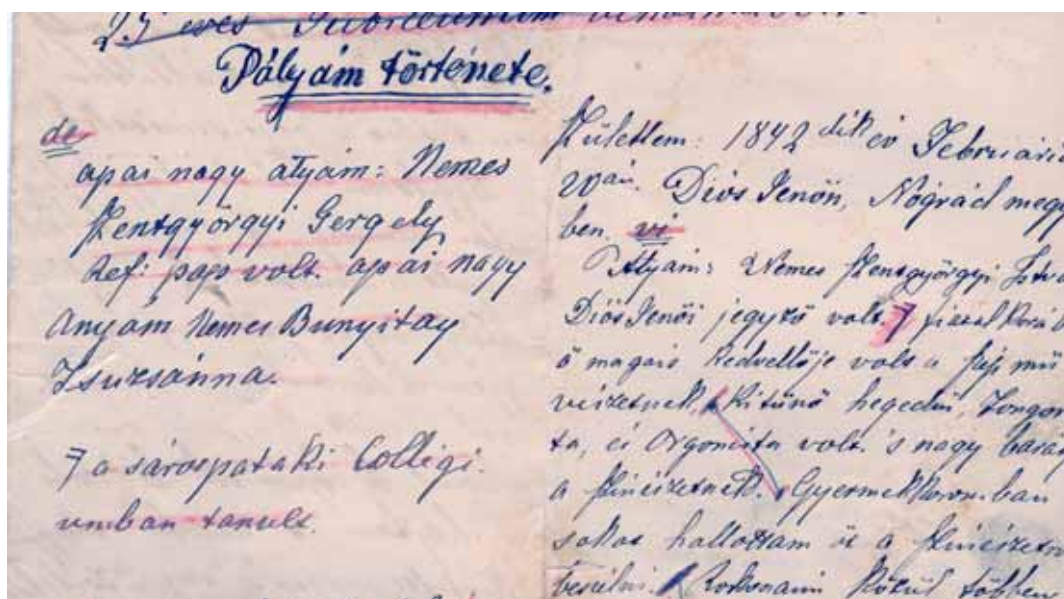 25 éves Jubileumom
Pályám története.
de
apai nagy atyám: Nemes
Szentgyörgyi Gergely
Ref: pap volt. apai nagy
Anyám Nemes Bunyitay
Zsuzsánna.
7 a sárospataki Collégi-
umban tanult.
Születtem: 1842 dik év Februári
20án. Diós Jenőn, Nógrád megy
ben. vi
Atyám: Nemes Szentgyörgyi Istv
Diós Jenői jegyző volt. 7 fiatal korá
ő maga is kedvellője volt a szép mű
vészetnek. Kitűnő hegedűs, Zongor
ta, és Orgonista volt. 's nagy barát
a színészetnek. Gyermekkoromban
sokat hallottam őt a színészetr
beszélni. Rokonaim közül többen